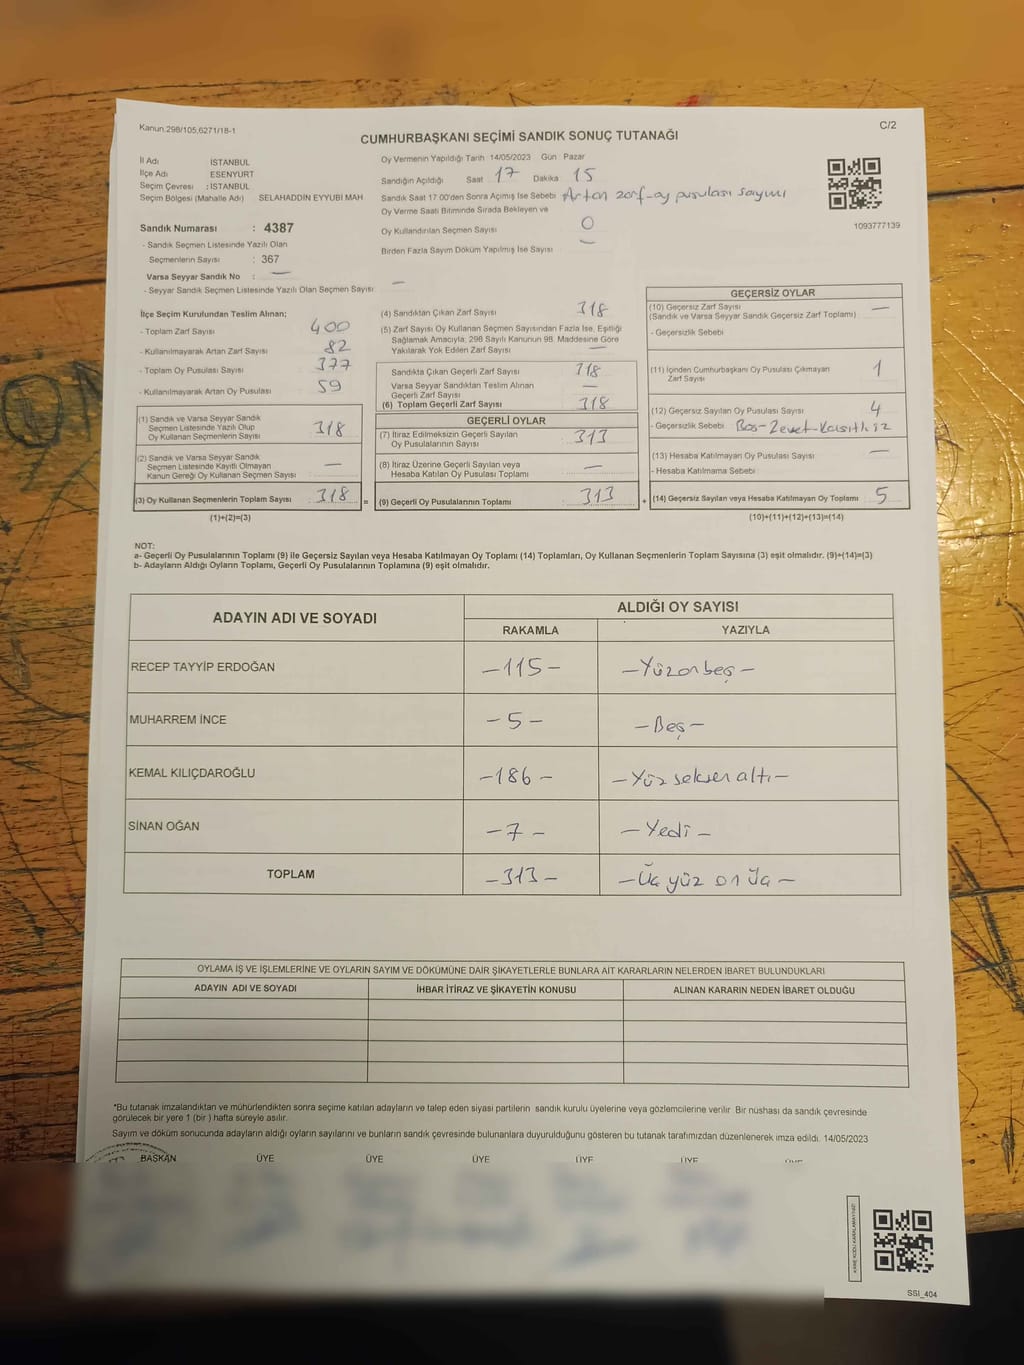 Kanun.298/105,6271/18-1
C/2
CUMHURBAŞKANI SEÇİMİ SANDIK SONUÇ TUTANAĞI
İl Adı İSTANBUL
İlçe Adı ESENYURT
Seçim Çevresi : İSTANBUL
Seçim Bölgesi (Mahalle Adı) SELAHADDIN EYYUBİ MAH
Oy Vermenin Yapıldığı Tarih 14/05/2023 Gün Pazar
Sandığın Açıldığı Saat 17 Dakika 15
Sandık Saat 17.00'den Sonra Açımış İse Sebebi Artan zarf-oy pusulası sayımı
Oy Verme Saati Bitiminde Sırada Bekleyen ve
Oy Kullandırılan Seçmen Sayısı 0
Birden Fazla Sayım Döküm Yapılmış İse Sayısı —
1093777139
Sandık Numarası : 4387
- Sandık Seçmen Listesinde Yazılı Olan
Seçmenlerin Sayısı : 367
Varsa Seyyar Sandık No : —
- Seyyar Sandık Seçmen Listesinde Yazılı Olan Seçmen Sayısı —
İlçe Seçim Kurulundan Teslim Alınan;
- Toplam Zarf Sayısı 400
- Kullanılmayarak Artan Zarf Sayısı 82
- Toplam Oy Pusulası Sayısı 377
- Kullanılmayarak Artan Oy Pusulası 59
(1) Sandık ve Varsa Seyyar Sandık
Seçmen Listesinde Yazılı Olup
Oy Kullanan Seçmenlerin Sayısı 318
(2) Sandık ve Varsa Seyyar Sandık
Seçmen Listesinde Kayıtlı Olmayan
Kanun Gereği Oy Kullanan Seçmen Sayısı —
(3) Oy Kullanan Seçmenlerin Toplam Sayısı 318 =
(1)+(2)=(3)
(4) Sandıktan Çıkan Zarf Sayısı 318
(5) Zarf Sayısı Oy Kullanan Seçmen Sayısından Fazla İse, Eşitliği
Sağlamak Amacıyla; 298 Sayılı Kanunun 98. Maddesine Göre
Yakılarak Yok Edilen Zarf Sayısı —
Sandıkta Çıkan Geçerli Zarf Sayısı 318
Varsa Seyyar Sandıktan Teslim Alınan
Geçerli Zarf Sayısı —
(6) Toplam Geçerli Zarf Sayısı 318
GEÇERLİ OYLAR
(7) İtiraz Edilmeksizin Geçerli Sayılan
Oy Pusulalarının Sayısı 313
(8) İtiraz Üzerine Geçerli Sayılan veya
Hesaba Katılan Oy Pusulası Toplamı —
(9) Geçerli Oy Pusulalarının Toplamı 313 +
GEÇERSİZ OYLAR
(10) Geçersiz Zarf Sayısı
(Sandık ve Varsa Seyyar Sandık Geçersiz Zarf Toplamı) —
- Geçersizlik Sebebi
(11) İçinden Cumhurbaşkanı Oy Pusulası Çıkmayan
Zarf Sayısı 1
(12) Geçersiz Sayılan Oy Pusulası Sayısı 4
- Geçersizlik Sebebi Boş-
(13) Hesaba Katılmayan Oy Pusulası Sayısı —
- Hesaba Katılmama Sebebi
(14) Geçersiz Sayılan veya Hesaba Katılmayan Oy Toplamı 5
(10)+(11)+(12)+(13)=(14)
NOT:
a- Geçerli Oy Pusulalarının Toplamı (9) ile Geçersiz Sayılan veya Hesaba Katılmayan Oy Toplamı (14) Toplamları, Oy Kullanan Seçmenlerin Toplam Sayısına (3) eşit olmalıdır. (9)+(14)=(3)
b- Adayların Aldığı Oyların Toplamı, Geçerli Oy Pusulalarının Toplamına (9) eşit olmalıdır.
ADAYIN ADI VE SOYADI
ALDIĞI OY SAYISI
RAKAMLA YAZIYLA
RECEP TAYYİP ERDOĞAN -115- -Yüzonbeş-
MUHARREM İNCE -5- -Beş-
KEMAL KILIÇDAROĞLU -186- -Yüz seksen altı-
SİNAN OĞAN -7- -Yedi-
TOPLAM -313- -Üç yüz on üç-
OYLAMA İŞ VE İŞLEMLERİNE VE OYLARIN SAYIM VE DÖKÜMÜNE DAİR ŞİKAYETLERLE BUNLARA AİT KARARLARIN NELERDEN İBARET BULUNDUKLARI
ADAYIN ADI VE SOYADI İHBAR İTİRAZ VE ŞİKAYETİN KONUSU ALINAN KARARIN NEDEN İBARET OLDUĞU
*Bu tutanak imzalandıktan ve mühürlendikten sonra seçime katılan adayların ve talep eden siyasi partilerin sandık kurulu üyelerine veya gözlemcilerine verilir. Bir nüshası da sandık çevresinde
görülecek bir yere 1 (bir ) hafta süreyle asılır.
Sayım ve döküm sonucunda adayların aldığı oyların sayılarını ve bunların sandık çevresinde bulunanlara duyurulduğunu gösteren bu tutanak tarafımızdan düzenlenerek imza edildi. 14/05/2023
BAŞKAN ÜYE ÜYE ÜYE ÜYE ÜYE ÜYE
SSI_404